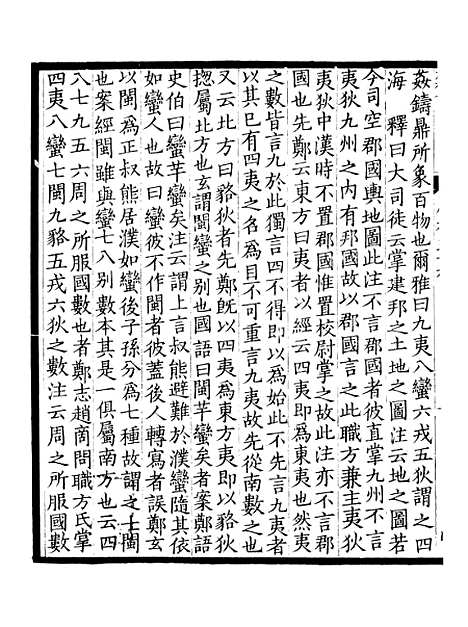 姦鑄鼎所象百物也爾雅曰九夷八蠻六戎五狄謂之四
海　釋曰大司徒云掌建邦之土地之圖注云地之圖若
今司空郡國輿地圖此注不言郡國者彼直掌九州不言
夷狄九州之内有邦國故以郡國言之此職方兼主夷狄
夷狄中漢時不置郡國惟置校尉掌之故此注亦不言郡
國也先鄭云東方曰夷者以經云四夷即爲東夷也然夷
之數皆言九於此獨言四不得即以爲始此不先言九夷者
以其巳有四夷之名爲目不可重言九夷故先從南數之也
又云北方曰貉狄者先鄭旣以四夷爲東方夷即以貉狄
揔屬北方也玄謂閩蠻之别也國語曰閩芉蠻矣者案鄭語
史伯曰蠻芉蠻矣注云謂上言叔熊避難於濮蠻隨其俗
如蠻人也故曰蠻彼不作閩者彼蓋後人轉寫者誤鄭玄
以閩爲正叔熊居濮如蠻後子孫分爲七種故謂之七閩
也案經閩雖與蠻七八别數本其是一俱屬南方也云四
八七九五六周之所服國數也者鄭志趙商問職方氏掌
四夷八蠻七閩九貉五戎六狄之數注云周之所服國數